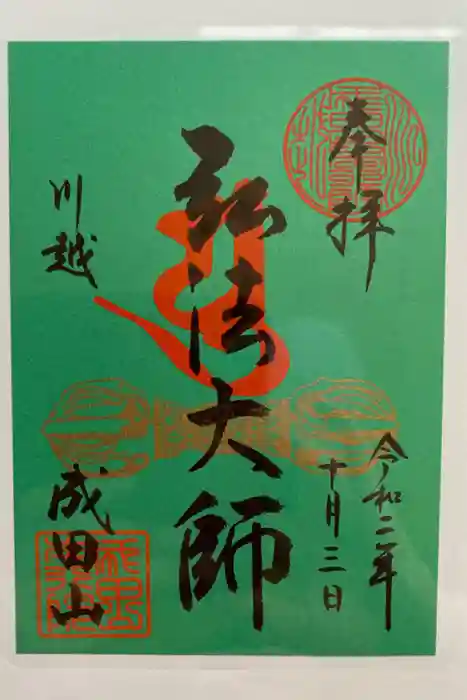 奉拝
令和二年
十月三日
弘法大師
川越
成田山